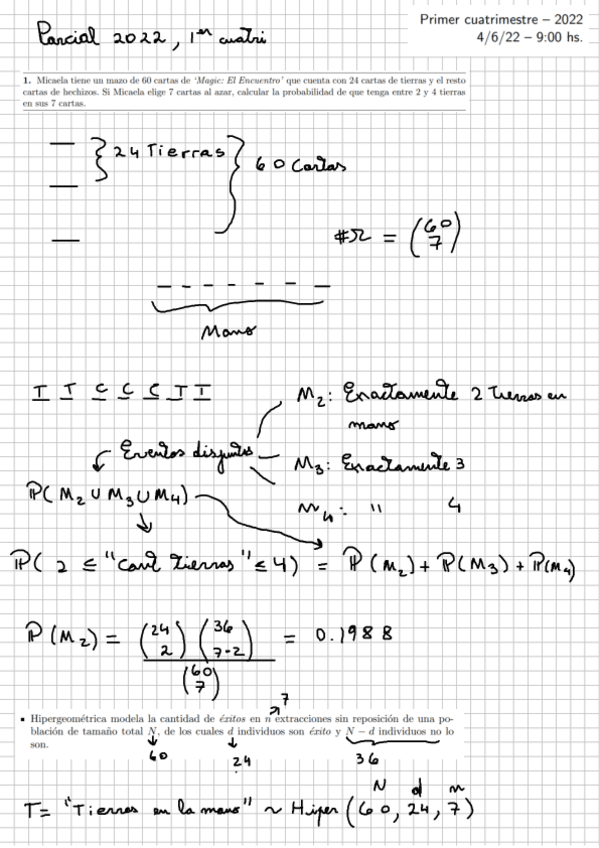 Primer cuatrimestre – 2022
Parcial 2022, 1er cuatri
4/6/22 – 9:00 hs.
1. Micaela tiene un mazo de 60 cartas de ‘Magic: El Encuentro’ que cuenta con 24 cartas de tierras y el resto
cartas de hechizos. Si Micaela elige 7 cartas al azar, calcular la probabilidad de que tenga entre 2 y 4 tierras
en sus 7 cartas.
24 Tierras
60 Cartas
#Ω = (60 7)
Mano
T T C C C T T
M2: Exactamente 2 Tierras en
mano
Eventos disjuntos
M3: Exactamente 3
P(M2 ∪ M3 ∪ M4)
M4: " 4
P( 2 ≤ "Cant tierras" ≤ 4) = P(M2) + P(M3) + P(M4)
P(M2) = (24 2) (36 7-2) / (60 7) = 0.1988
7
▪ Hipergeométrica modela la cantidad de éxitos en n extracciones sin reposición de una po-
blación de tamaño total N, de los cuales d individuos son éxito y N − d individuos no lo
son.
60 24 36
N d n
T = "Tierras en la mano" ~ Hiper (60, 24, 7)